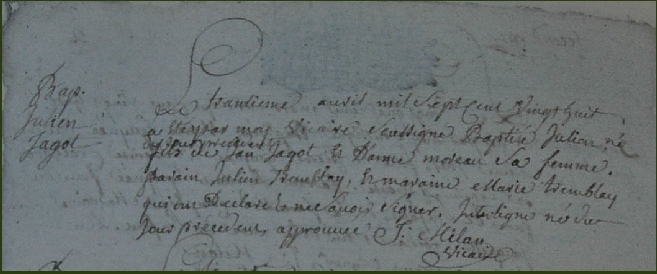 Bap.
Julien
Jagot
Le trantieme avril mil Sept Cent Vingt huit
a Eté par moy Vicaire Soussigné Baptisé Julien né
du jour precedent
fils de Jan Jagot Et Dame moreau Sa femme.
parain Julien tremblay, Et maraine Marie tremblay
qui ont Declaré ne Scavoir Signer. Interligne né du
Jour précédent approuvée J: Milau
Vicaire